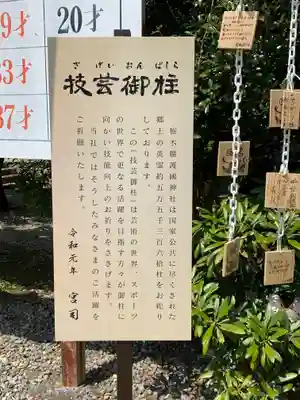 9才
20才
33才
37才
ざげいおんばしら
技芸御柱
栃木縣護國神社は国家公共に尽くされた
郷土の英霊約五万五千三百六拾柱をお祀り
しております。
この「技芸御柱」は芸術の世界、スポーツ
の世界で更なる活躍を目指す方々が御柱に
向かい技能向上のお祈りをささげます。
当社ではそうしたみなさまのご活躍を
ご祈願いたします。
令和元年 宮司